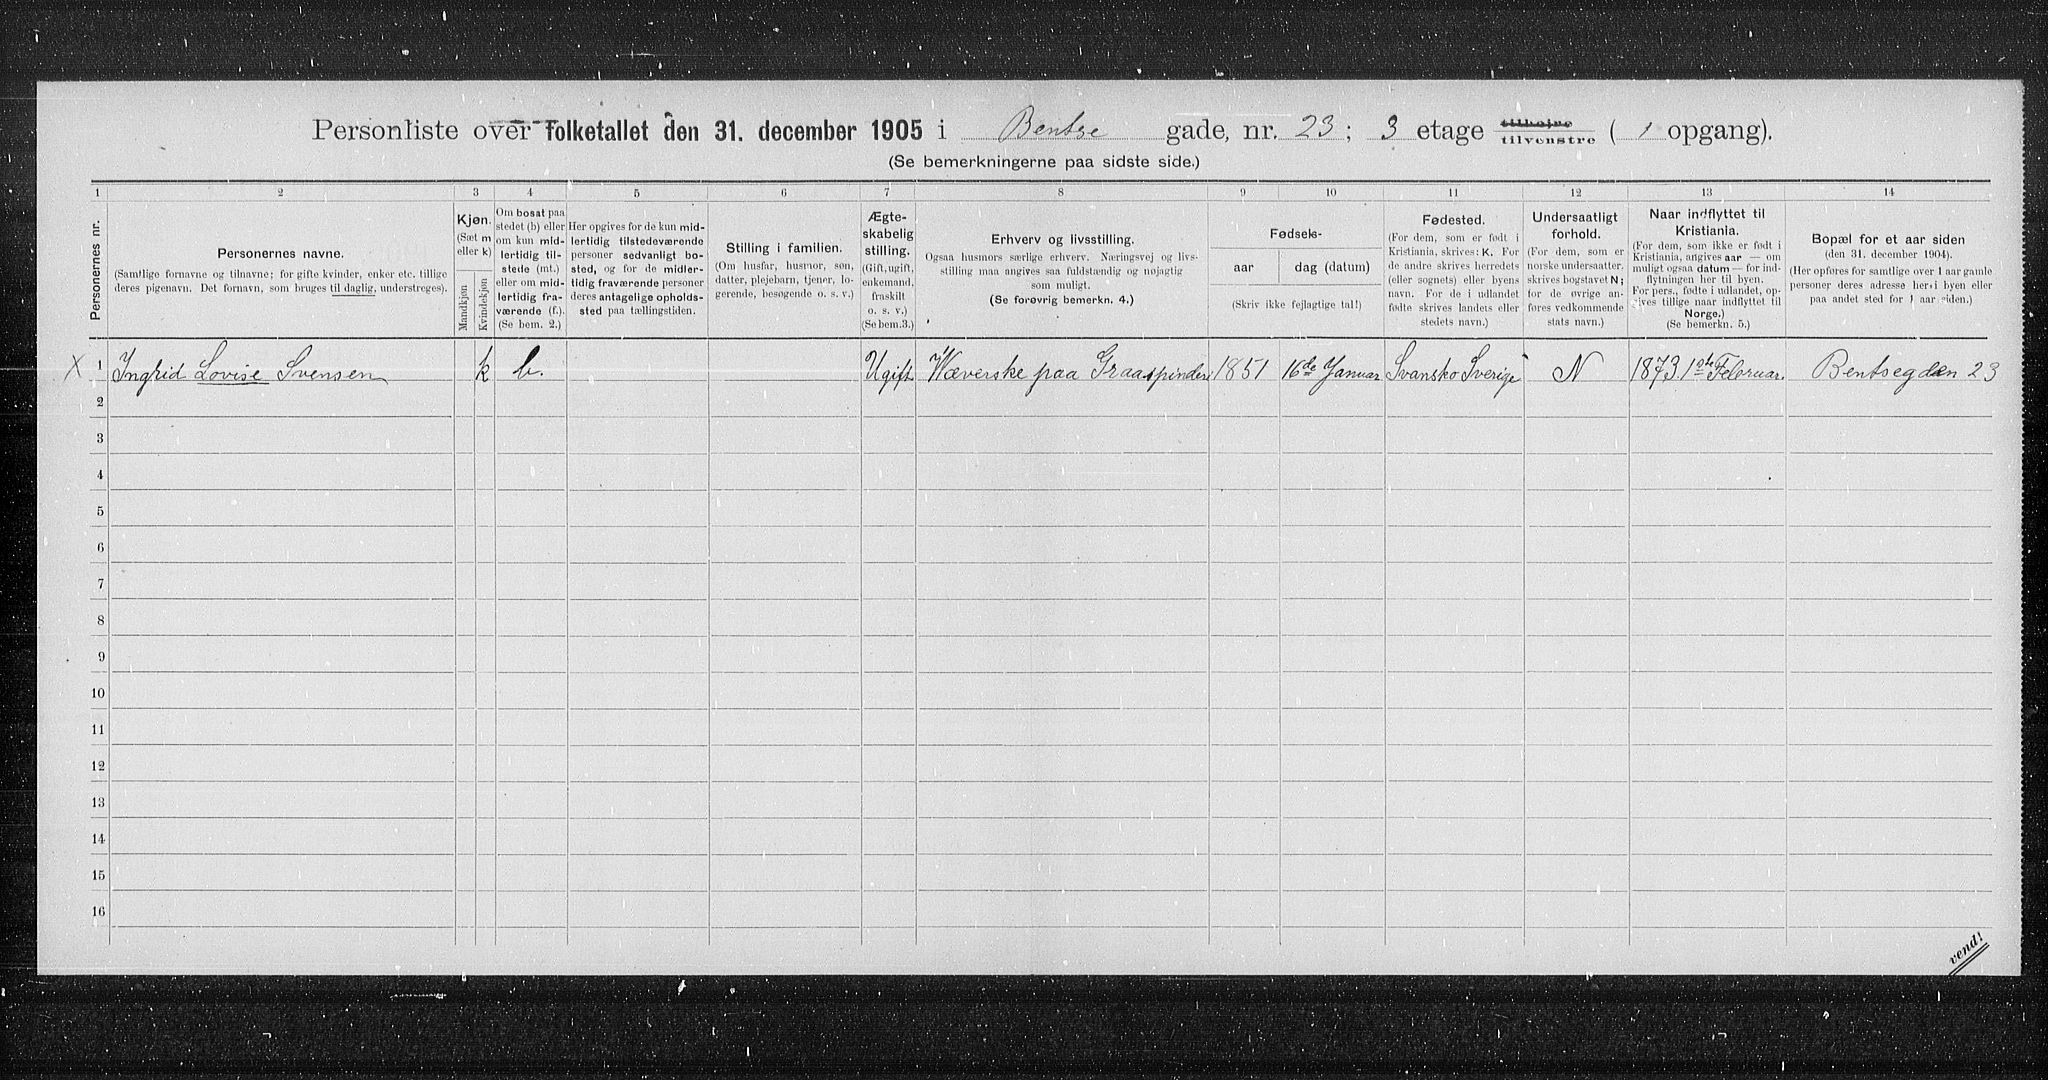 Personliste over folketallet den 31. december 1905 i Bentse gade, nr. 23; 3 etage tilhøire tilvenstre (1 opgang).
(Se bemerkningerne paa sidste side.)
1 2 3 4 5 6 7 8 9 10 11 12 13 14
Personernes nr.
Personernes navne.
(Samtlige fornavne og tilnavne; for gifte kvinder, enker etc. tillige
deres pigenavn. Det fornavn, som bruges til daglig, understreges).
Kjøn.
(Sæt m
eller k)
Mandkjøn
Kvindekjøn
Om bosat paa
stedet (b) eller
om kun mid-
lertidig til-
stede (mt.)
eller om mid-
lertidig fra-
værende (f.).
(Se bem. 2.)
Her opgives for de kun mid-
lertidig tilstedeværende
personer sedvanlig bo-
sted, og for de midler-
tidig fraværende personer
deres antagelige opholds-
sted paa tællingstiden.
Stilling i familien.
(Om husfar, husmor, søn,
datter, plejebarn, tjener, lo-
gerende, besøgende o. s. v.)
Ægte-
skabelig
stilling.
(Gift, ugift,
enkemand,
fraskilt
o. s. v.)
(Se bem.3.)
Erhverv og livsstilling.
Ogsaa husmors særlige erhverv. Næringsvej og livs-
stilling maa angives saa fuldstændig og nøjagtig
som muligt.
(Se forøvrig bemerkn. 4.)
Fødsels-
aar
dag (datum)
(Skriv ikke fejlagtige tal!)
Fødested.
(For dem, som er født i
Kristiania, skrives: K. For
de andre skrives herredets
(eller sognets) eller byens
navn. For de i udlandet
fødte skrives landets eller
stedets navn.)
Undersaatligt
forhold.
(For dem, som er
norske undersaatter,
skrives bogstavet N;
for de øvrige an-
føres vedkommende
stats navn.)
Naar indflyttet til
Kristiania.
(For dem, som ikke er født i
Kristiania, angives aar — om
muligt ogsaa datum — for ind-
flytningen her til byen.
For pers., fødte i udlandet, op-
gives tillige naar indflyttet til
Norge.)
(Se bemerkn. 5.)
Bopæl for et aar siden
(den 31. december 1904).
(Her opføres for samtlige over 1 aar gamle
personer deres adresse her i byen eller
paa andet sted for 1 aar siden.)
X 1 Ingrid Lovise Svensen k b. Ugift Wæverske paa Graaspinderi 1851 16de Januar Svansko Sverige N 1873 1ste Februar. Bentsegden 23
2
3
4
5
6
7
8
9
10
11
12
13
14
15
16
vend!